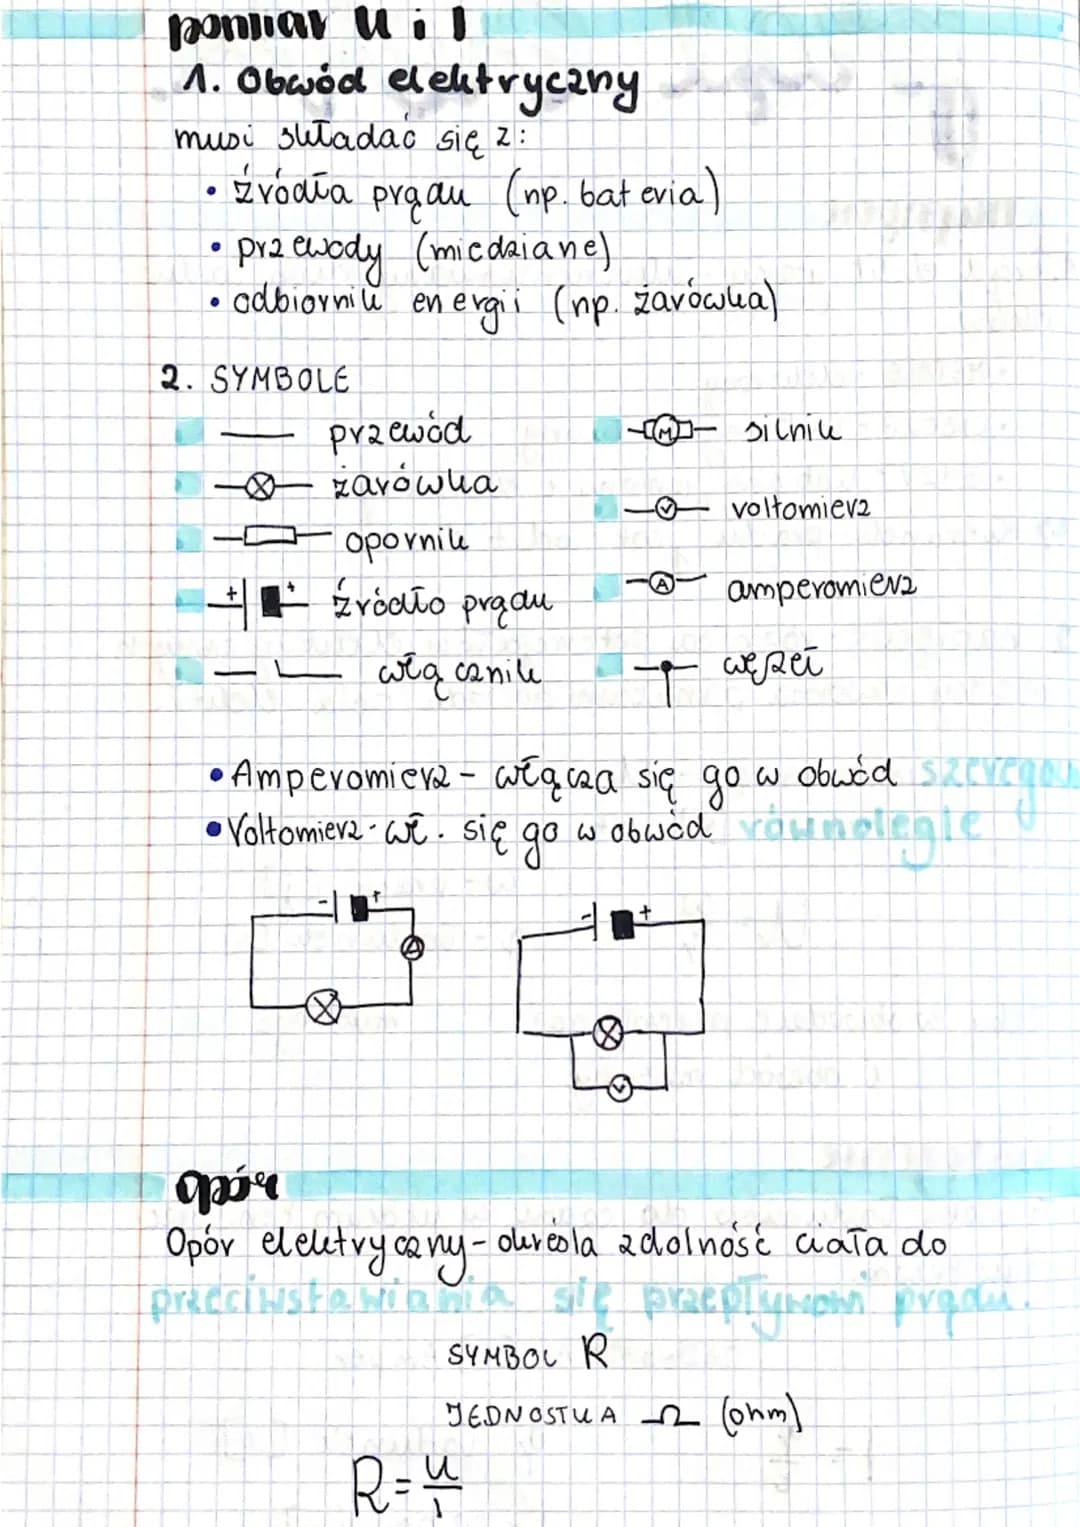 pomiar U i I
1. Obwód elektryczny
musi składać się z:
• źródła prądu (np. bateria)
• przewody (miedziane)
• odbiornik energii (np. żarówka)
2. SYMBOLE
przewód
żarówka
opornik
+ + źródło prądu
włącznik
M silnik
V voltomierz
A amperomierz
węzeł
• Amperomierz - włącza się go w obwód szeregou
• Voltomierz - wł. się go w obwód równolegle
- +
A
- +
V
opór
Opór elektryczny - określa zdolność ciała do
przeciwstawiania się przepływowi prądu.
SYMBOL R
JEDNOSTKA Ω (ohm)
R = U/I